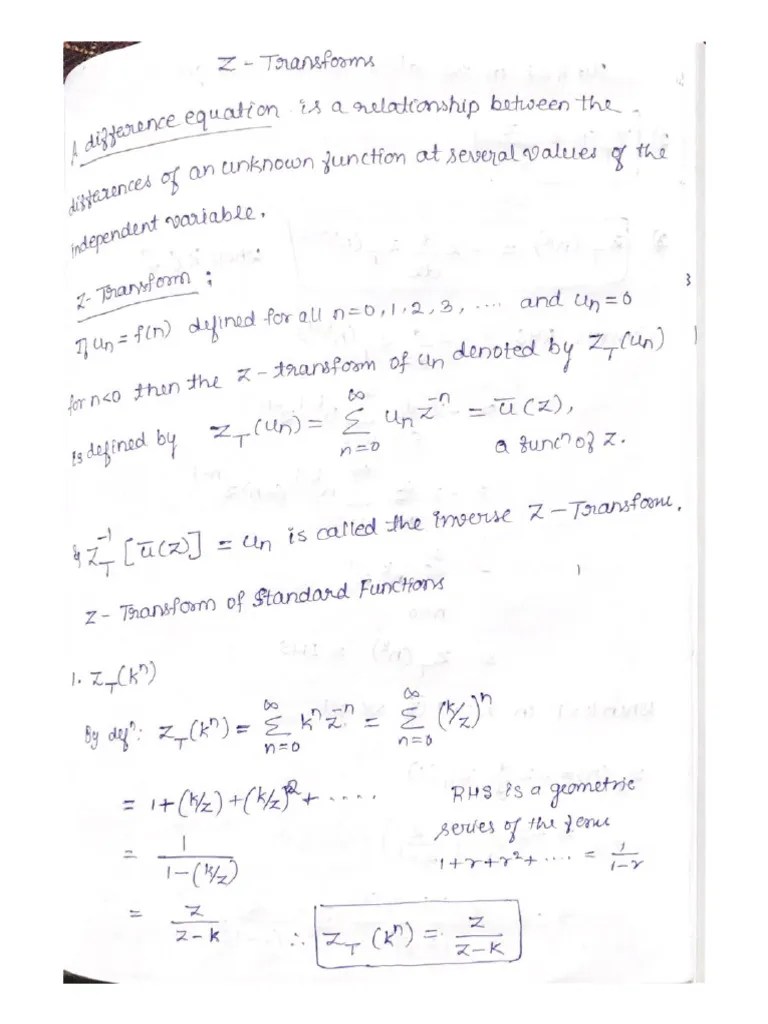 Z - Transforms
A difference equation is a relationship between the
differences of an unknown function at several values of the
independent variable.
Z- Transform :
If un = f(n) defined for all n=0, 1, 2, 3, .... and un=0
for n<0 then the Z - transform of un denoted by Z_T(un)
is defined by Z_T(un) = ∑_{n=0}^{∞} un z^{-n} = ū(z),
a funcⁿ of z.
& Z_T^{-1} [ū(z)] = un is called the inverse Z - Transform.
Z - Transform of Standard Functions
1. Z_T(kⁿ)
By defⁿ: Z_T(kⁿ) = ∑_{n=0}^{∞} kⁿ z^{-n} = ∑_{n=0}^{∞} (k/z)ⁿ
= 1+(k/z)+(k/z)²+ ....
RHS is a geometric
series of the form
1+r+r²+ .... = 1/(1-r)
= 1/(1-(k/z))
= z/(z-k) ∴ Z_T(kⁿ) = z/(z-k)